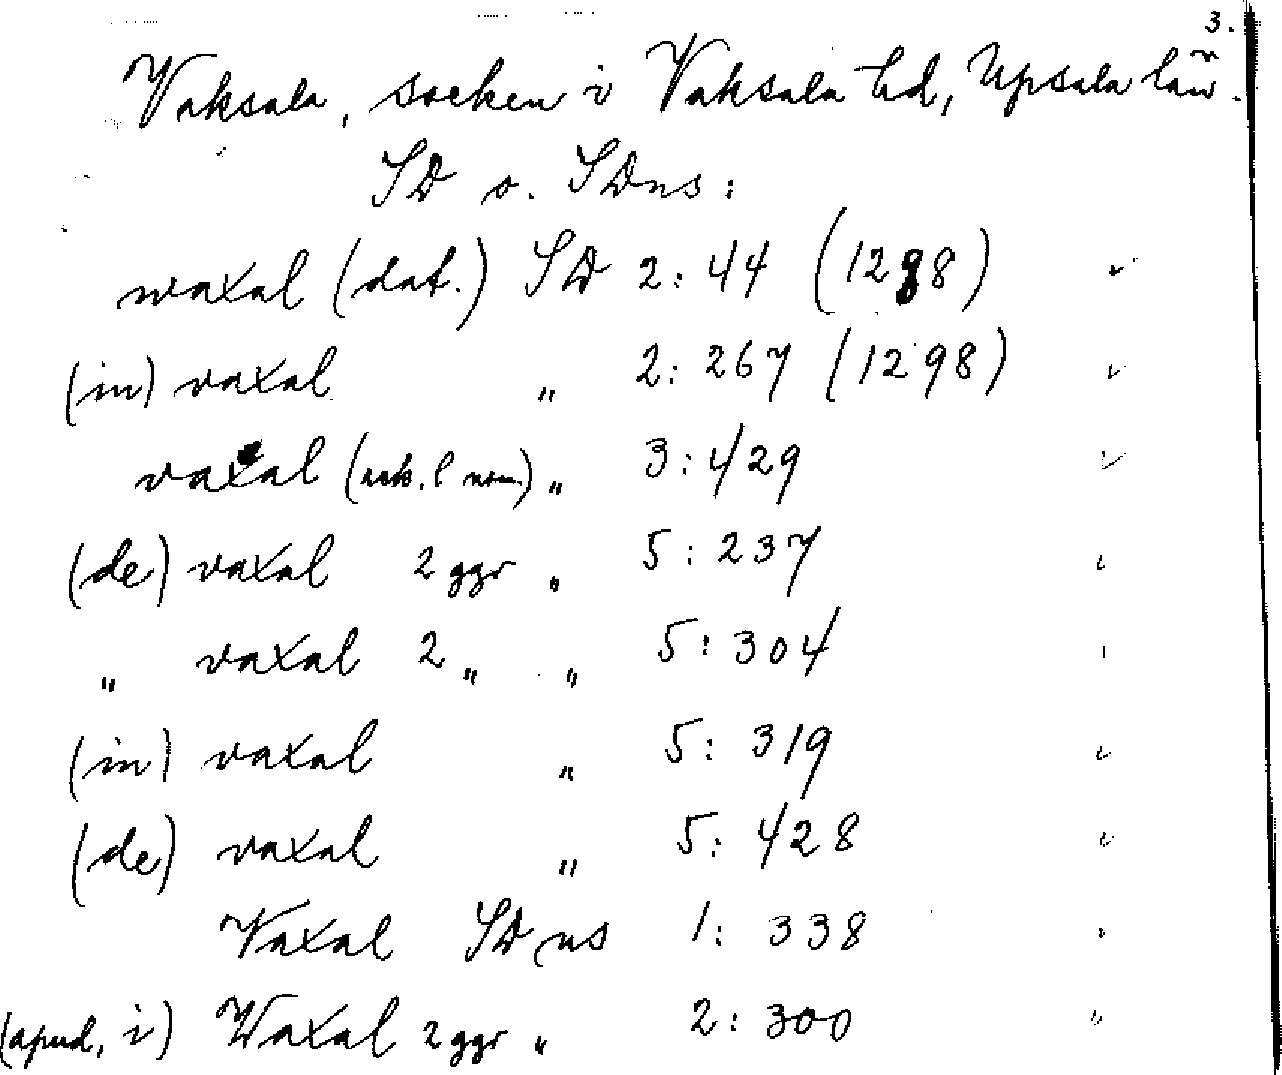 3.
Vaksala, socken i Vaksala hd, Upsala län.
SD o. SDns:
waxal (dat.) SD 2: 44 (1288)
(in) vaxal " 2: 267 (1298)
vaxal (ack. l nom.) " 3: 429
(de) vaxal 2 ggr " 5: 237
" vaxal 2 " " 5: 304
(in) vaxal " 5: 319
(de) vaxal " 5: 428
Vaxal SDns 1: 338
(apud, i) Waxal 2 ggr " 2: 300